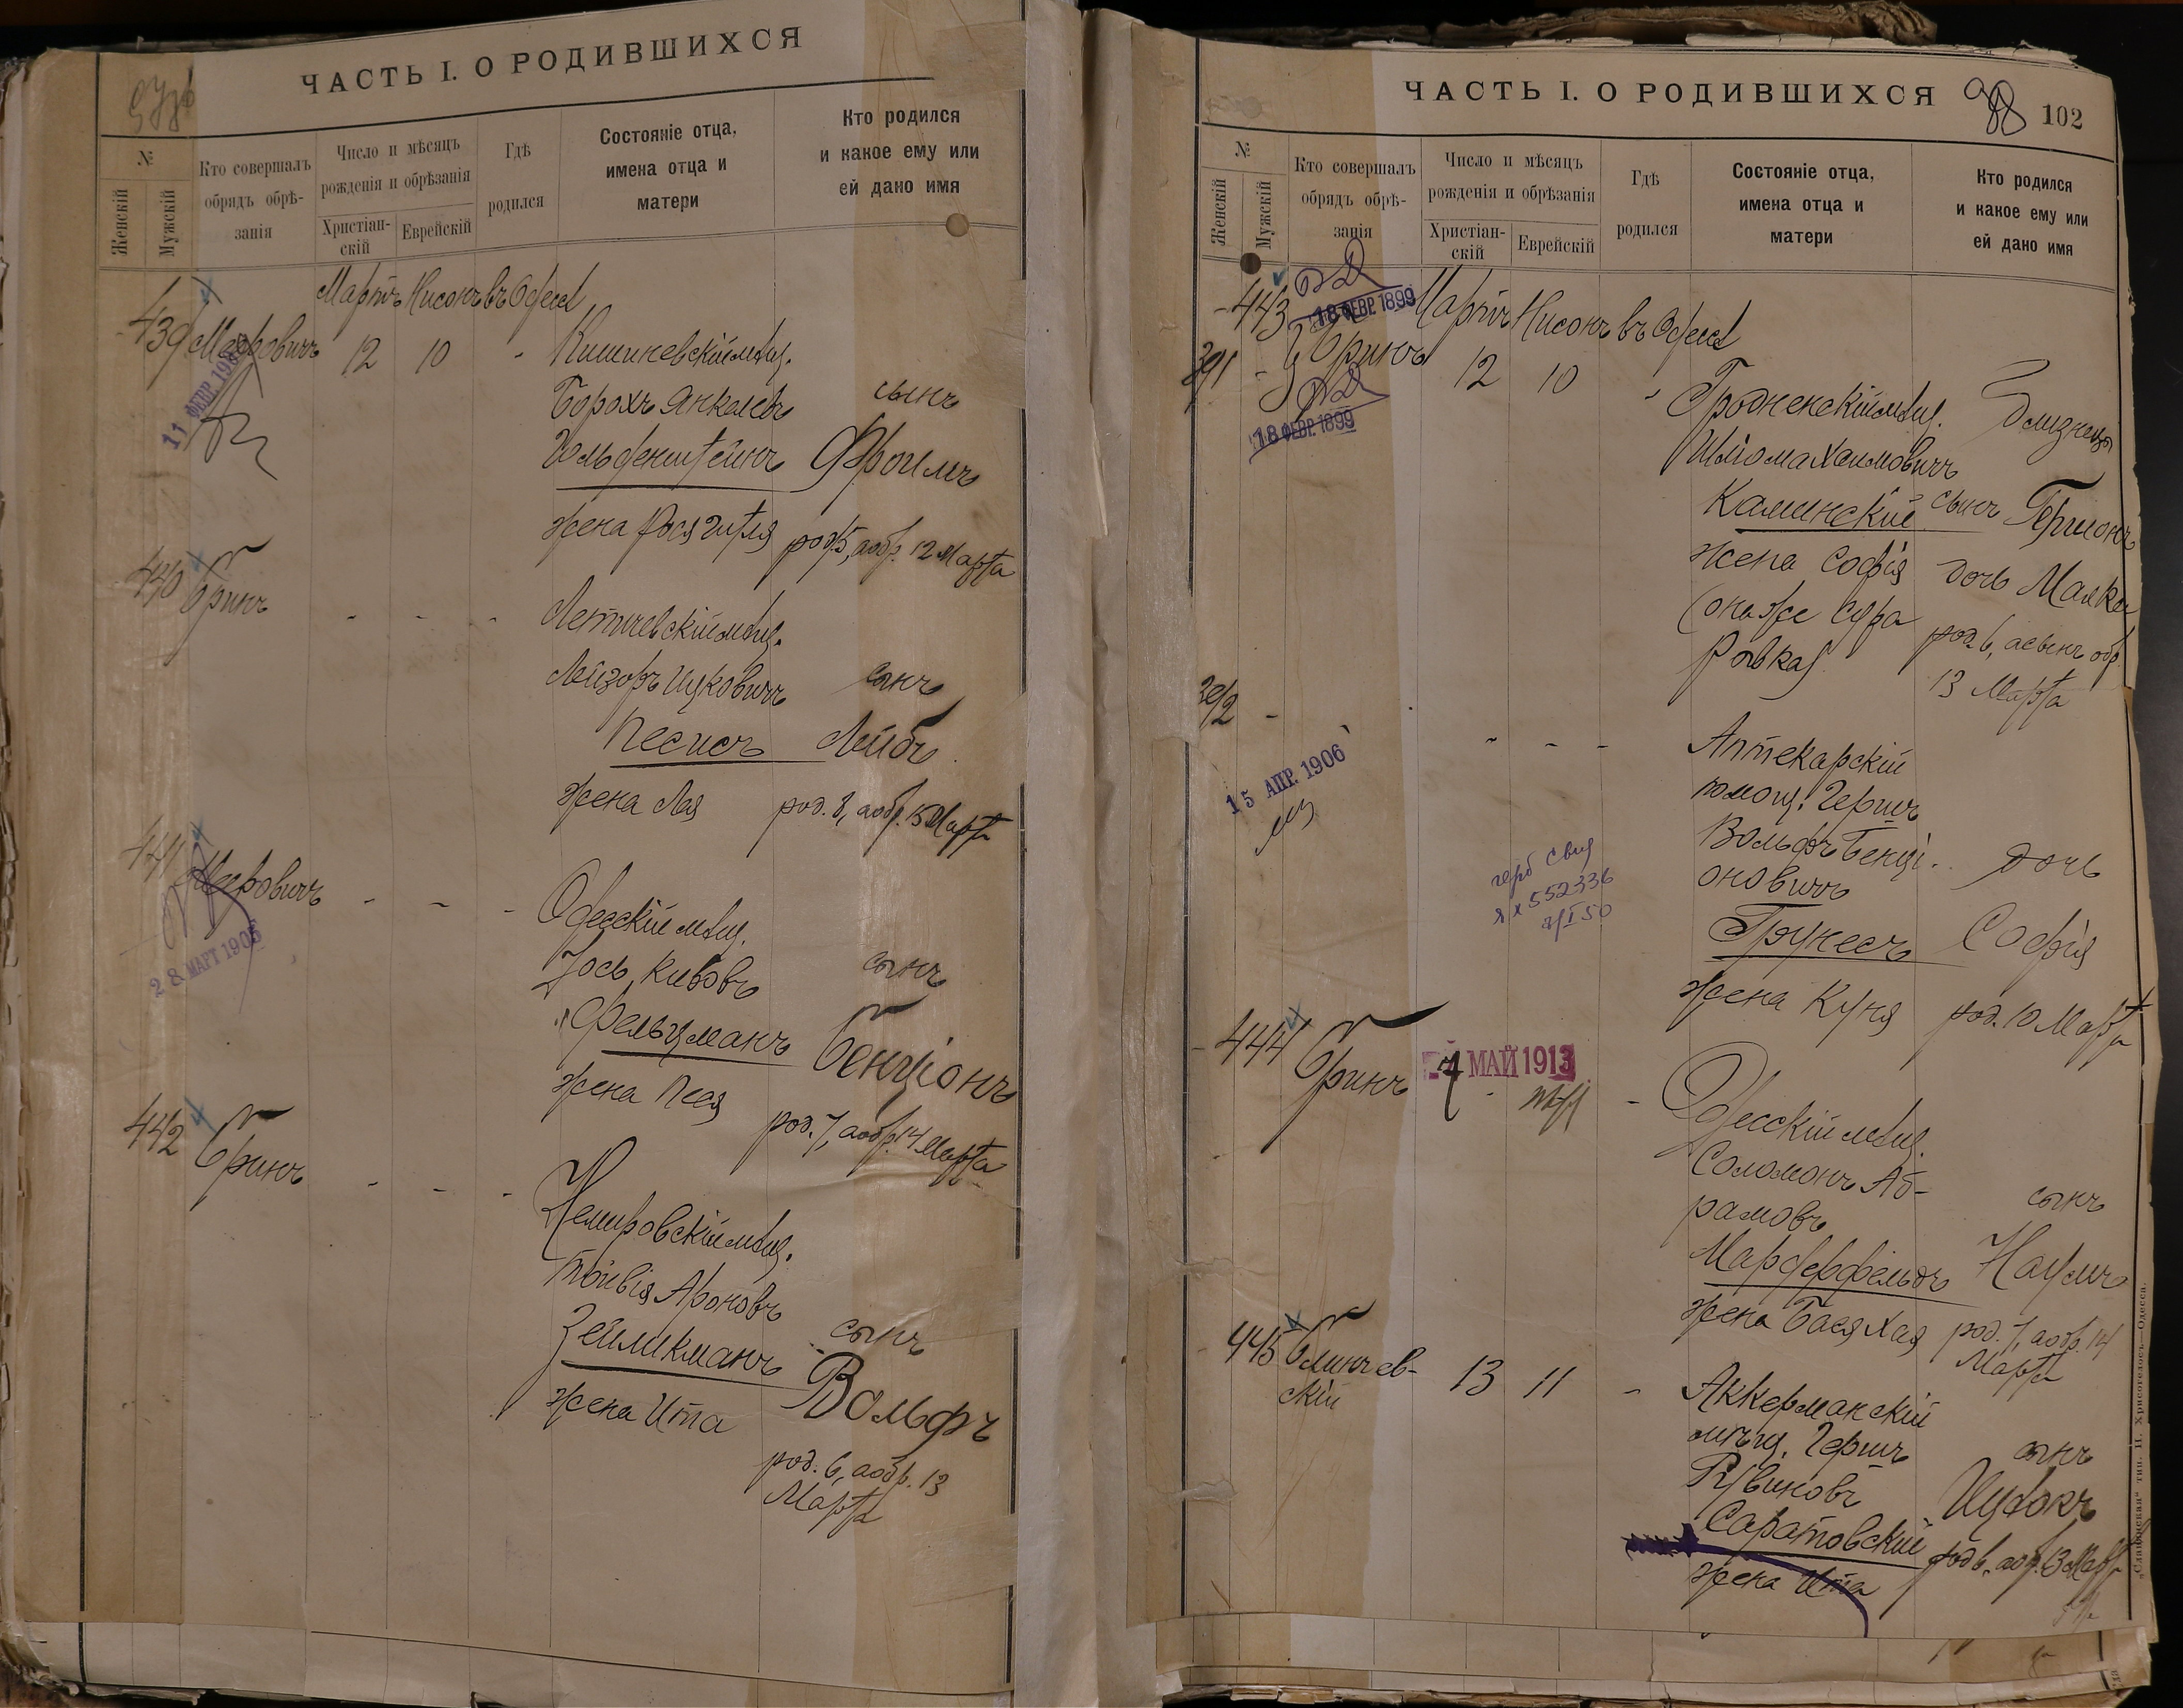 ЧАСТЬ I. О РОДИВШИХСЯ
№
Женскій
Мужскій
Кто совершалъ
обрядъ обрѣ-
занія
Число и мѣсяцъ
рожденія и обрѣзанія
Христіан-
скій
Еврейскій
Гдѣ
родился
Состояніе отца,
имена отца и
матери
Кто родился
и какое ему или
ей дано имя
Мартъ Нисонъ въ Одессѣ
439 Мееровичъ 12 10 - Кишиневскій мѣщ.
11 ФЕВР. 190
Борохъ Янкелевъ сынъ
Гольденштейнъ Фроимъ
жена Рося Гитля род. 5, а обр. 12 Марта
440 Бринъ - - - Летичевскій мѣщ.
Лейзоръ Ицковичъ сынъ
Песисъ Лейбъ
жена Лея род. 8, а обр. 15 Марта
441 Мееровичъ - - - Одесскій мѣщ.
28 МАРТ 1905
Іось Кивовъ сынъ
Фельцманъ Бенціонъ
жена Песя род. 7, а обр. 14 Марта
442 Бринъ - - - Немировскій мѣщ.
Тойвія Ароновъ
Зейликманъ сынъ
жена Ита Вольфъ
род. 6, а обр. 13
Марта
ЧАСТЬ I. О РОДИВШИХСЯ 98 102
№
Женскій
Мужскій
Кто совершалъ
обрядъ обрѣ-
занія
Число и мѣсяцъ
рожденія и обрѣзанія
Христіан-
скій
Еврейскій
Гдѣ
родился
Состояніе отца,
имена отца и
матери
Кто родился
и какое ему или
ей дано имя
18 ФЕВР. 1899
Мартъ Нисонъ въ Одессѣ
443 Бринъ 12 10 - Гродненскій мѣщ. близнецы
391
18 ФЕВР. 1899
Шлiома Хаимовичъ
Каминскій сынъ Гершонъ
жена Софія дочь Малка
(она же Сура род. 6, а сынъ обр.
Ривка) 13 Марта
392 - - - - Аптекарскій
15 АПР. 1906
помощ. Гершъ
Вольфъ Бенці- дочь
оновичъ
герб свид
552336
Грунесъ Софія
жена Куня род. 10 Марта
444 Бринъ - - Одесскій мѣщ.
7 МАЙ 1913
Соломонъ Аб-
рамовъ сынъ
Мардерфельдъ Наумъ
жена Бася Хая род. 7, а обр. 14
Марта
445 Блинчев-
скій 13 11 - Аккерманскій
мѣщ. Гершъ сынъ
Рувиновъ Ицхокъ
Саратовскій род. 6, а обр. 13 Марта
жена Ита
„Славянская“ тип. Н. Хрисогелосъ—Одесса.